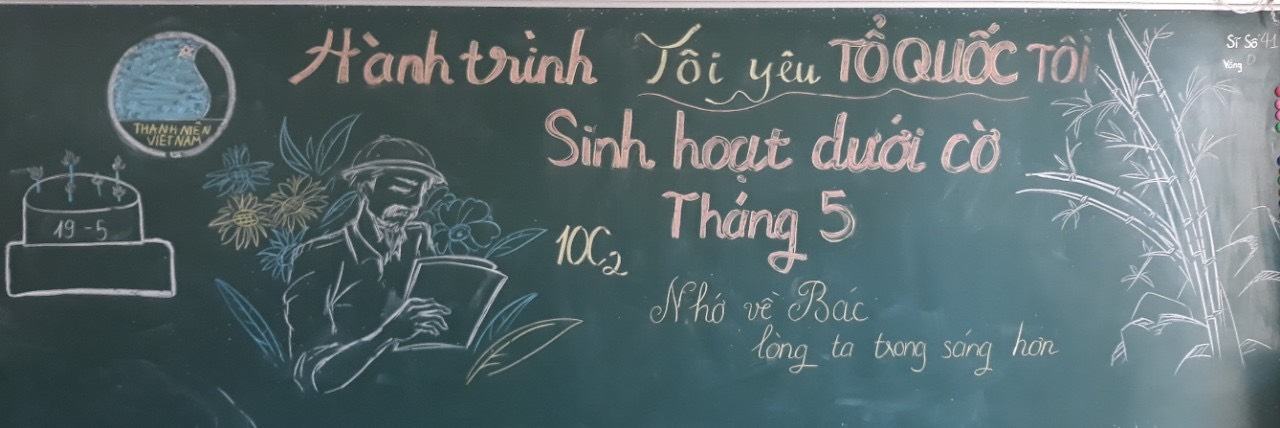 Hành trình Tôi yêu TỔ QUỐC TÔI
Sĩ Số: 41
Vắng 0
Sinh hoạt dưới cờ
Tháng 5
THANH NIÊN
VIỆT NAM
19-5
10C2
Nhớ về Bác
lòng ta trong sáng hơn